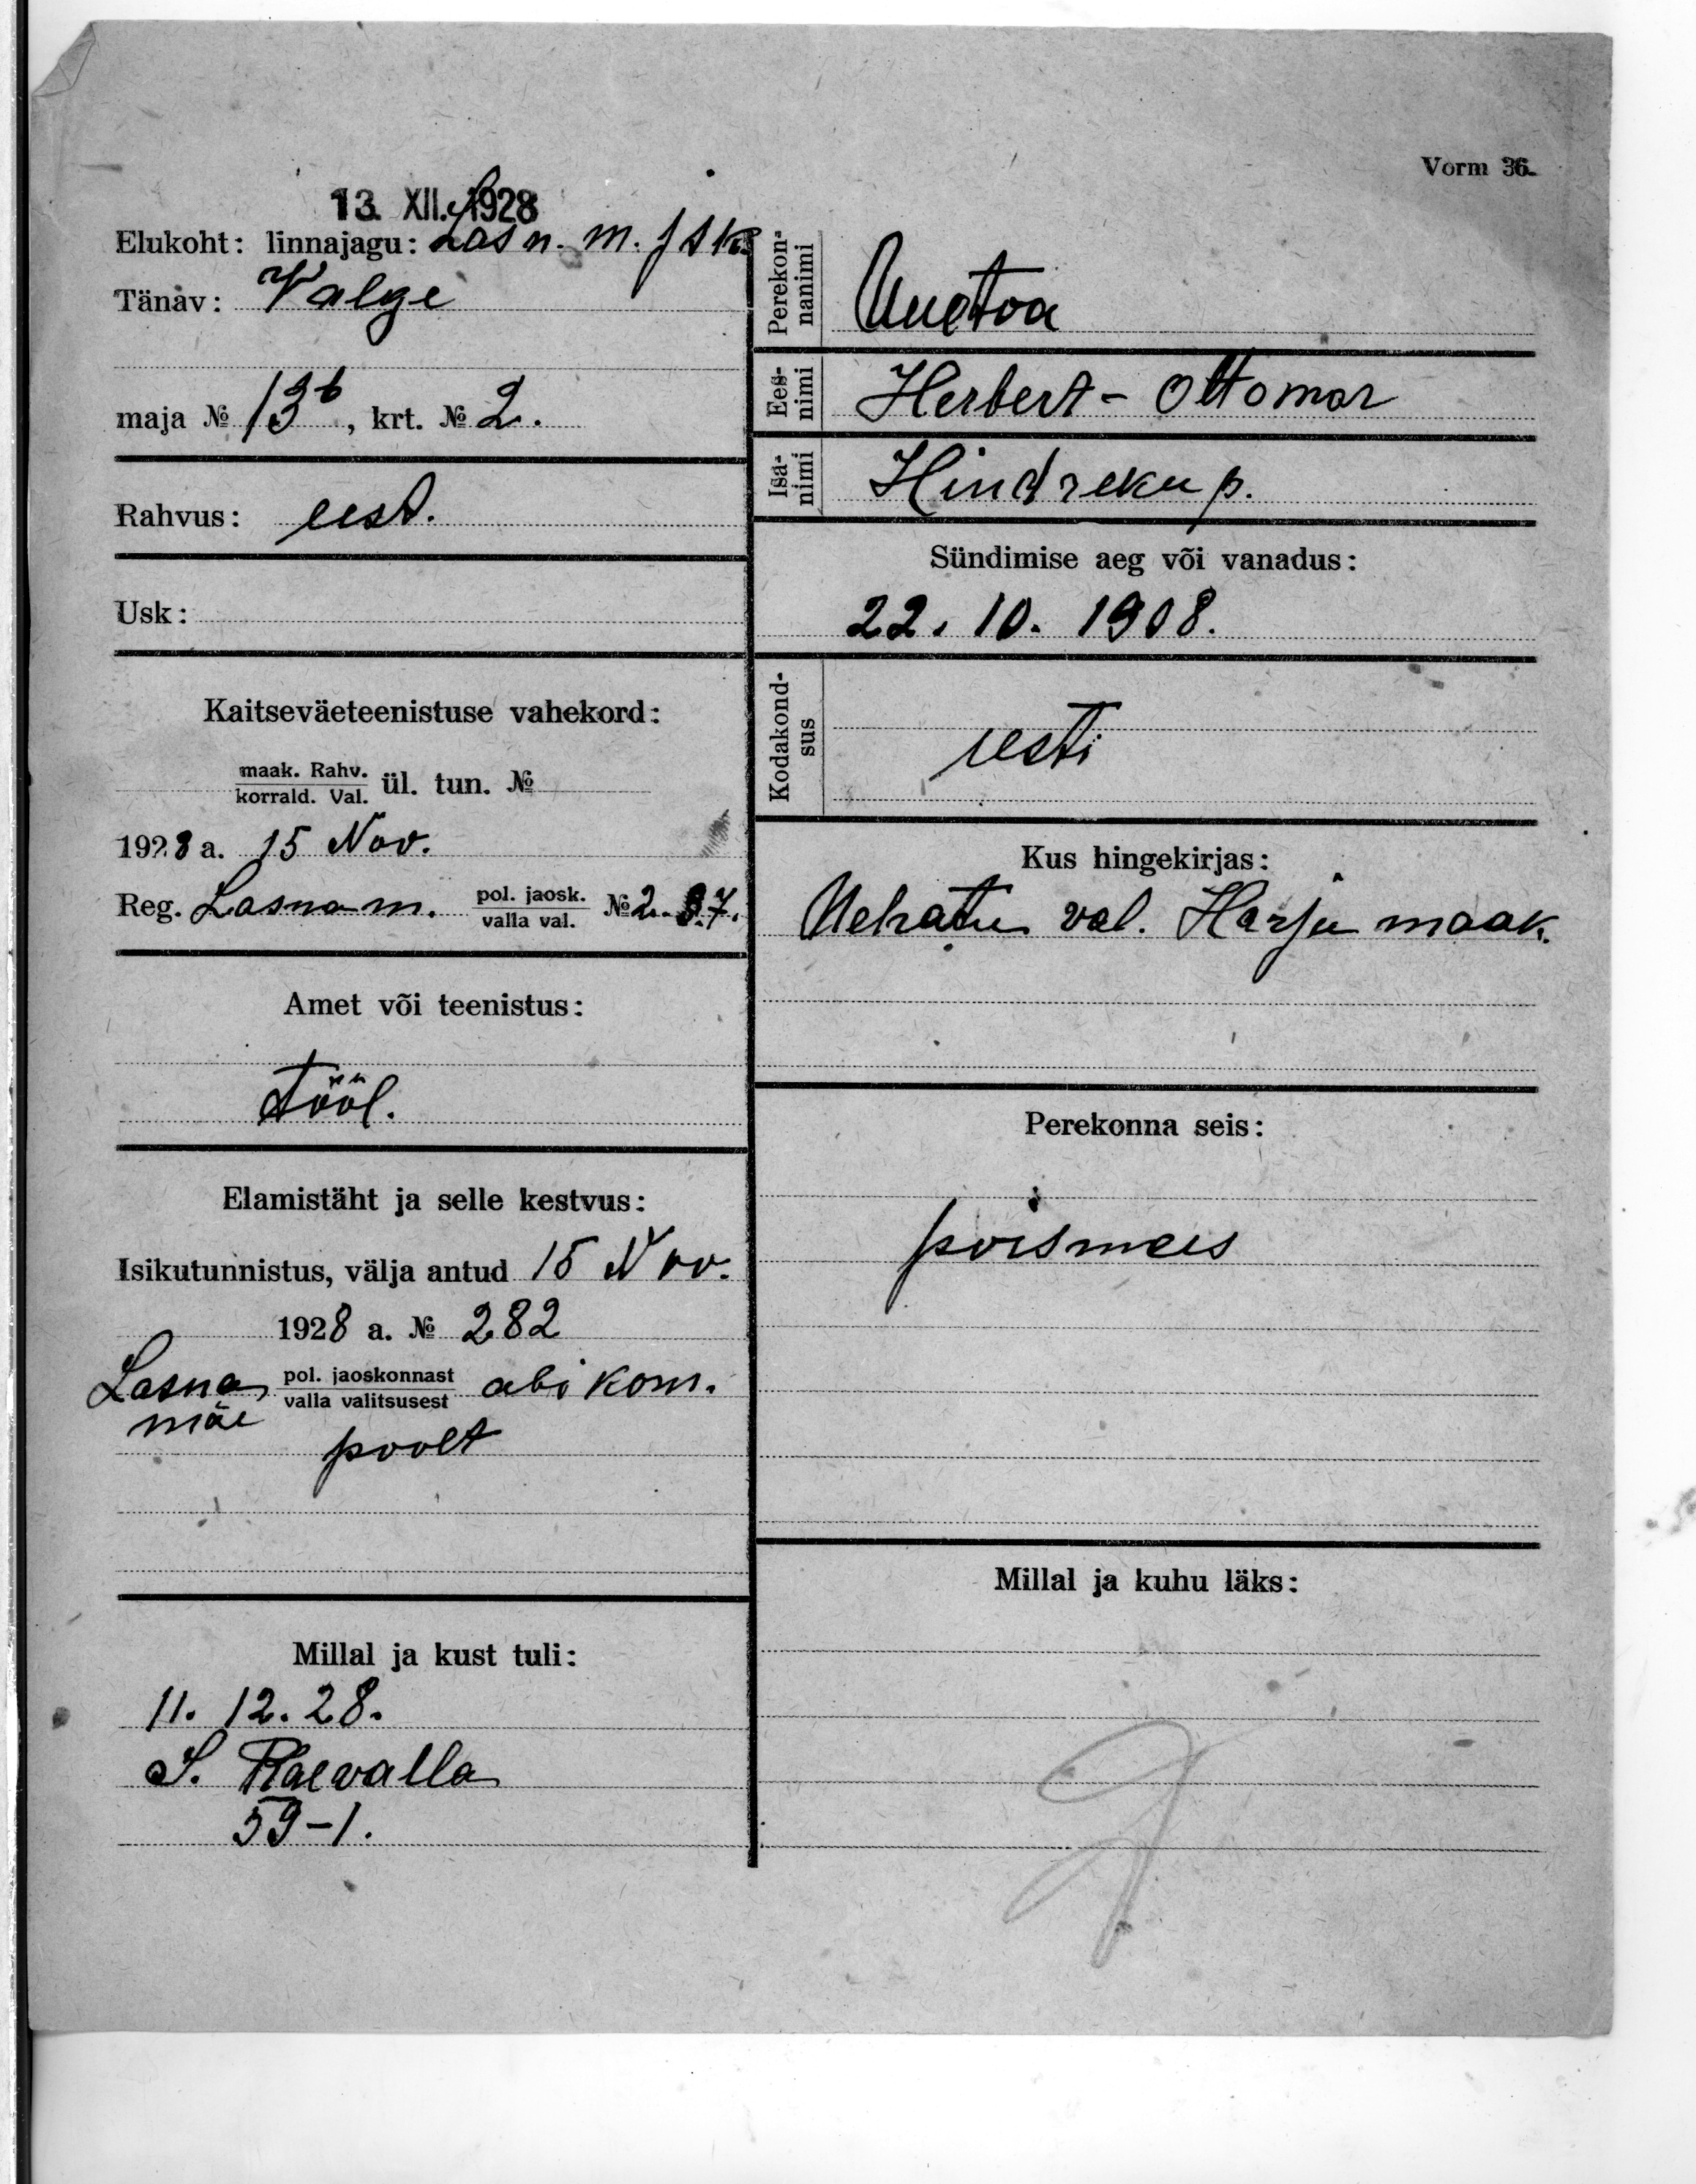 Vorm 36.
13. XII. 1928
Elukoht: linnajagu: Lasn. m. jsk.
Tänav: Valge
maja № 13b, krt. № 2.
Rahvus: eest.
Usk:
Kaitseväeteenistuse vahekord:
maak. Rahv.
korrald. Val. ül. tun. №
1928 a. 15 Nov.
Reg. Lasnam. pol. jaosk. № 2.37.
valla val.
Amet või teenistus:
tööl.
Elamistäht ja selle kestvus:
Isikutunnistus, välja antud 15 Nov.
1928 a. № 282
Lasna pol. jaoskonnast abi kom.
mäe valla valitsusest
poolt
Millal ja kust tuli:
11. 12. 28.
S. Raevalla
59-1.
Perekon-
nanimi Uuetoa
Ees-
nimi Herbert-Ottomar
Isa-
nimi Hindreku p.
Sündimise aeg või vanadus:
22. 10. 1908.
Kodakond-
sus eesti
Kus hingekirjas:
Nehatu val. Harju maak.
Perekonna seis:
poismees
Millal ja kuhu läks: